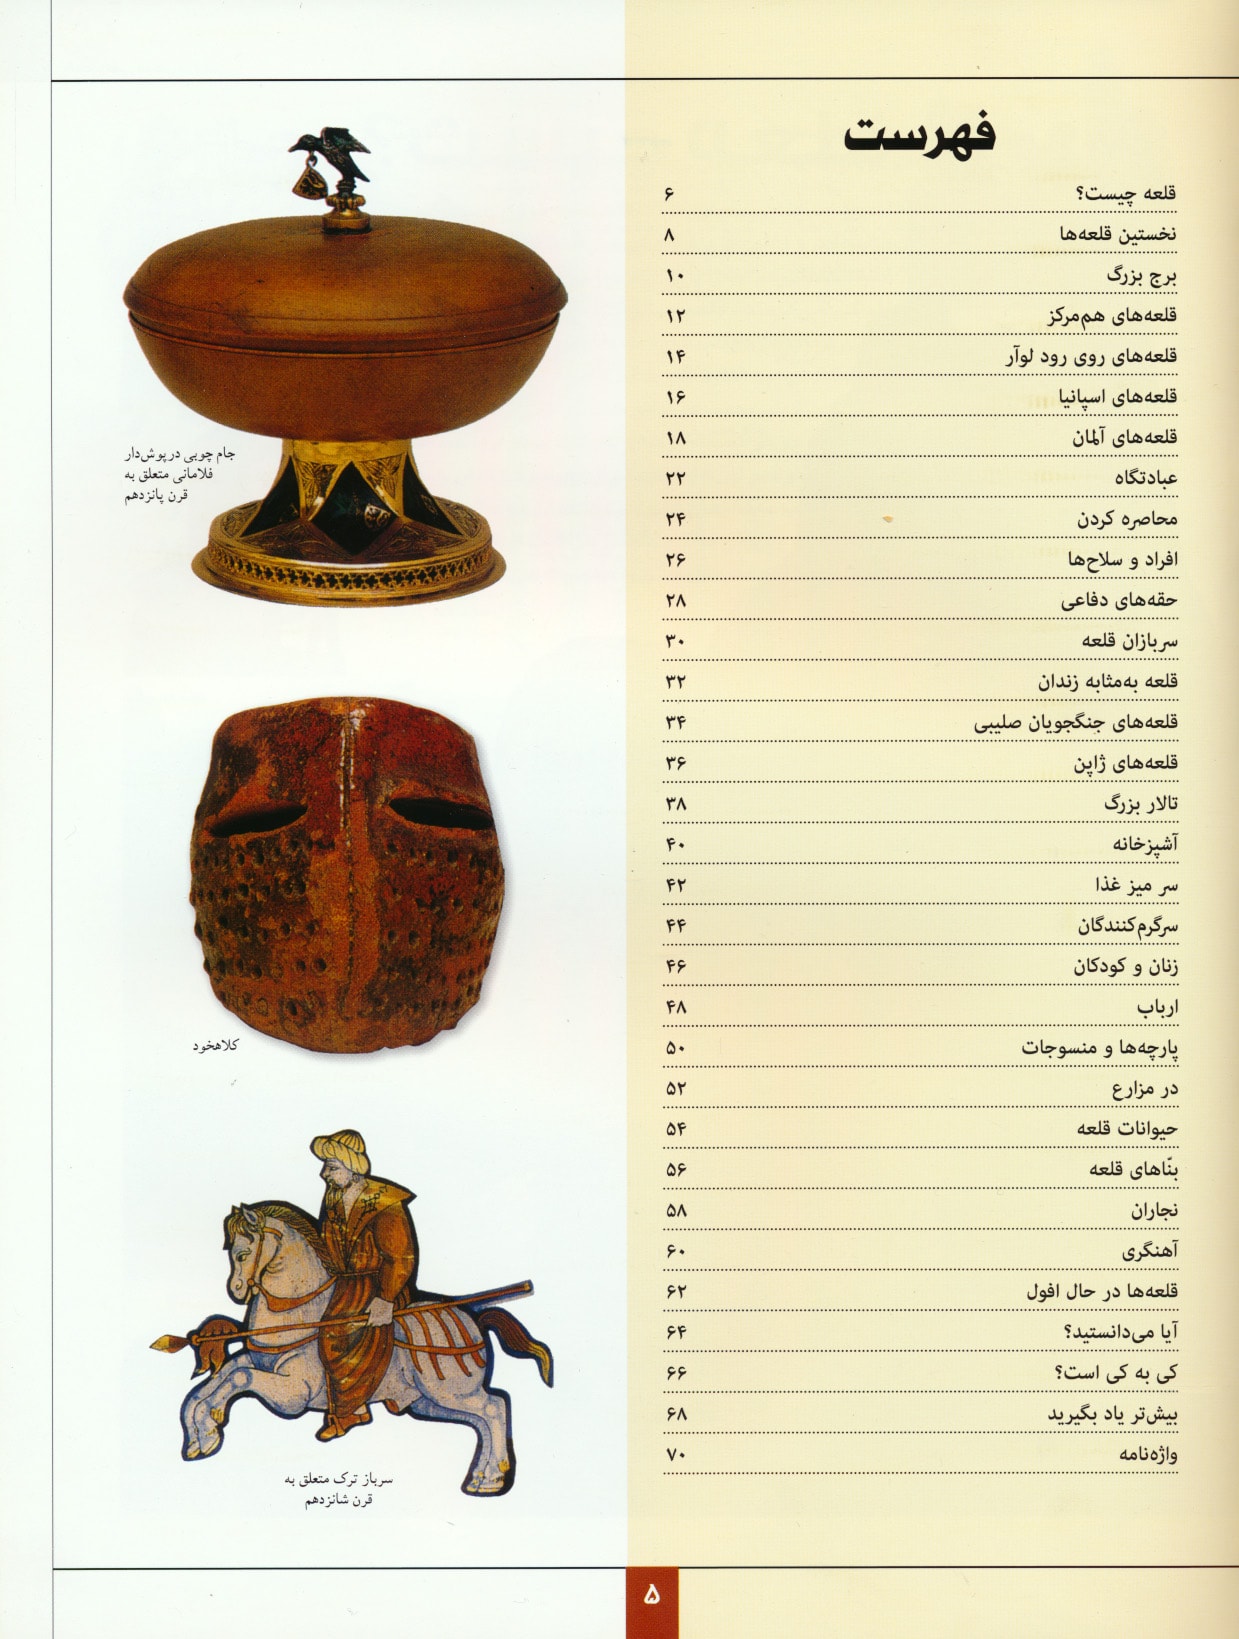 فهرست
قلعه چیست؟ ۶
نخستین قلعه‌ها ۸
برج بزرگ ۱۰
قلعه‌های هم‌مرکز ۱۲
قلعه‌های روی رود لوآر ۱۴
قلعه‌های اسپانیا ۱۶
قلعه‌های آلمان ۱۸
عبادتگاه ۲۲
محاصره کردن ۲۴
افراد و سلاح‌ها ۲۶
حقه‌های دفاعی ۲۸
سربازان قلعه ۳۰
قلعه به‌مثابه زندان ۳۲
قلعه‌های جنگجویان صلیبی ۳۴
قلعه‌های ژاپن ۳۶
تالار بزرگ ۳۸
آشپزخانه ۴۰
سر میز غذا ۴۲
سرگرم‌کنندگان ۴۴
زنان و کودکان ۴۶
ارباب ۴۸
پارچه‌ها و منسوجات ۵۰
در مزارع ۵۲
حیوانات قلعه ۵۴
بنّاهای قلعه ۵۶
نجاران ۵۸
آهنگری ۶۰
قلعه‌ها در حال افول ۶۲
آیا می‌دانستید؟ ۶۴
کی به کی است؟ ۶۶
بیش‌تر یاد بگیرید ۶۸
واژه‌نامه ۷۰
جام چوبی درپوش‌دار
فلامانی متعلق به
قرن پانزدهم
کلاهخود
سرباز ترک متعلق به
قرن شانزدهم
۵